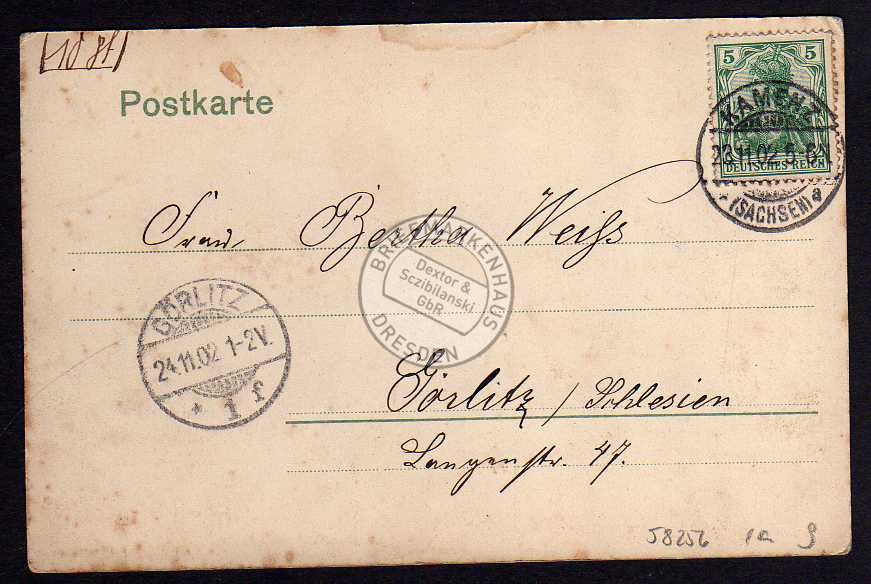 Postkarte
5 5
DEUTSCHES REICH
KAMENZ
23.11.02. 5-6N
* (SACHSEN) a
Frau Bertha Weiß
BRIEFMARKENHAUS
Dextor &
Sczibilanski
GbR
DRESDEN
GÖRLITZ
24.11.02 1-2V.
* 1 f
Görlitz / Schlesien
Langenstr. 47.
58256 1a 9